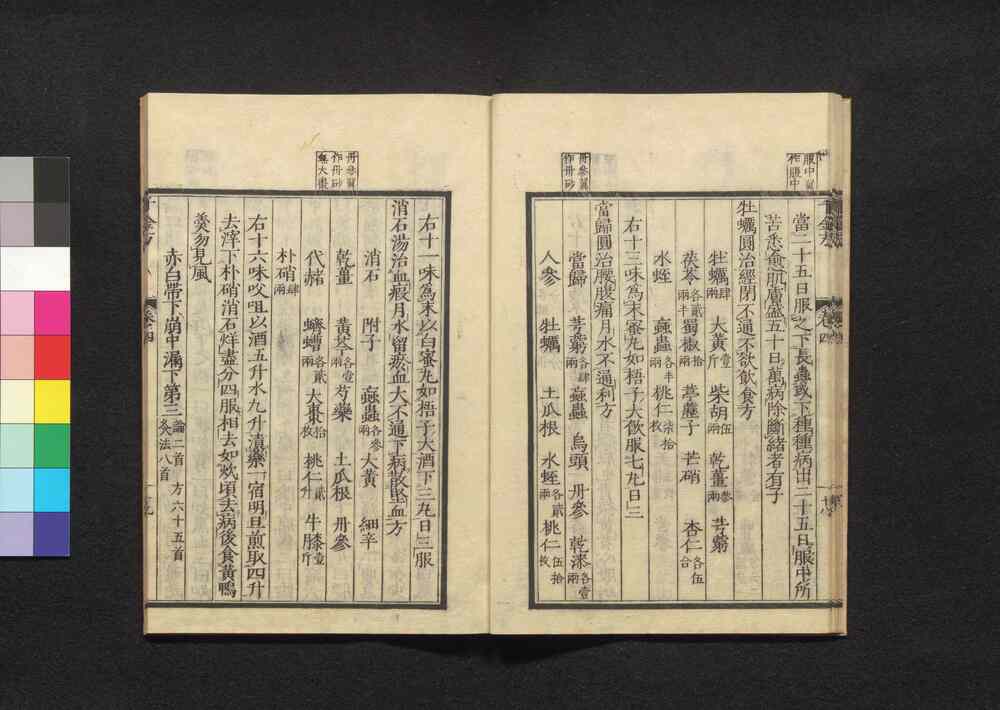 腹中翼
作腹中
當二十五日服之下長蟲或下種種病出二十五日服中所
苦悉愈肌膚盛五十日萬病除斷緒者有子
牡蠣圓治經閉不通不欲飲食方
牡蠣肆兩 大黃壹斤 柴胡伍兩 乾薑參兩 芎藭
茯苓各貳兩半 蜀椒拾兩 葶藶子 芒硝 杏仁各伍合
水蛭 䖟蟲各半兩 桃仁柒拾枚
右十三味爲末蜜丸如梧子大飲服七丸日三
當歸圓治腰腹痛月水不通利方
丹參翼
作丹砂
當歸 芎藭各肆兩 䖟蟲 烏頭 丹參 乾漆各壹兩
人參 牡蠣 土瓜根 水蛭各貳兩 桃仁伍拾枚
右十一味爲末以白蜜丸如梧子大酒下三丸日三服
消石湯治血瘕月水留瘀血大不通下病散堅血方
消石 附子 䖟蟲各參兩 大黃 細辛
丹參翼
作丹砂
無大棗
乾薑 黃芩各壹兩 芍藥 土瓜根 丹參
代赭 蠐螬各貳兩 大棗拾枚 桃仁貳升 牛膝壹斤
朴硝肆兩
右十六味㕮咀以酒五升水九升漬藥一宿明旦煎取四升
去滓下朴硝消石烊盡分四服相去如炊頃去病後食黃鴨
羹勿見風
赤白帶下崩中漏下第三論二首 方六十五首 灸法八首
千金方
卷四